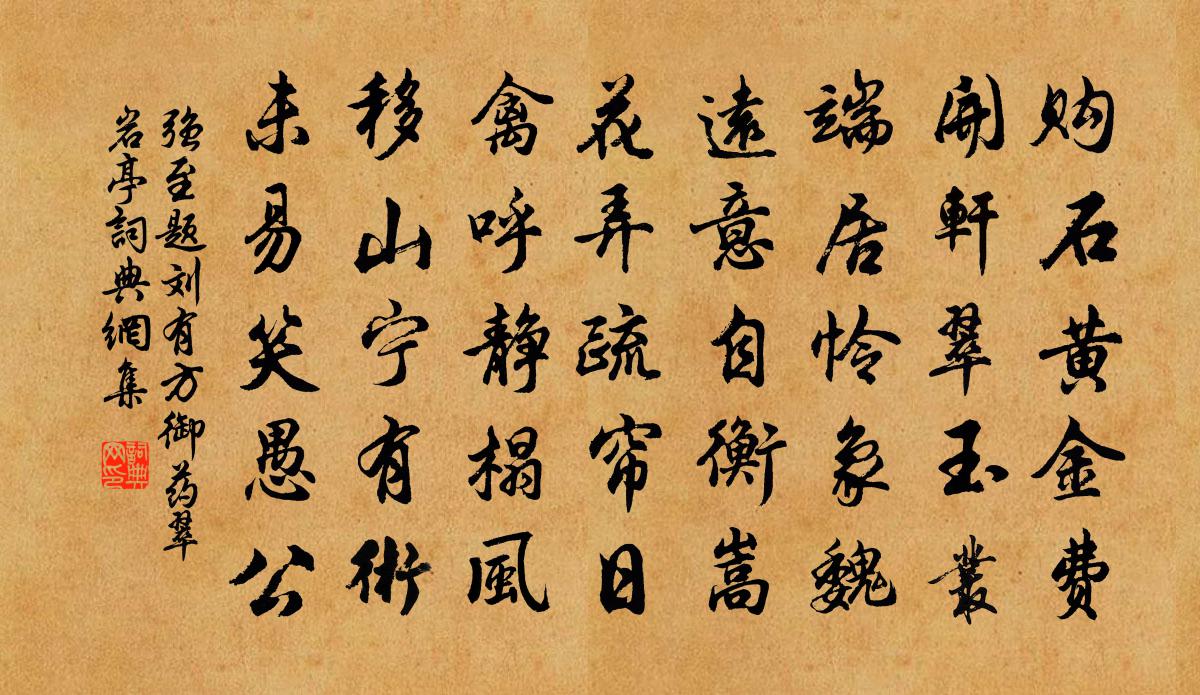 购石黄金费
開軒翠玉叢
端居怜象魏
遠意自衡嵩
花弄疏帘日
禽呼静榻風
移山宁有術
未易笑愚公
强至题刘有方御药翠
岩亭詞典網集
詞典
网印